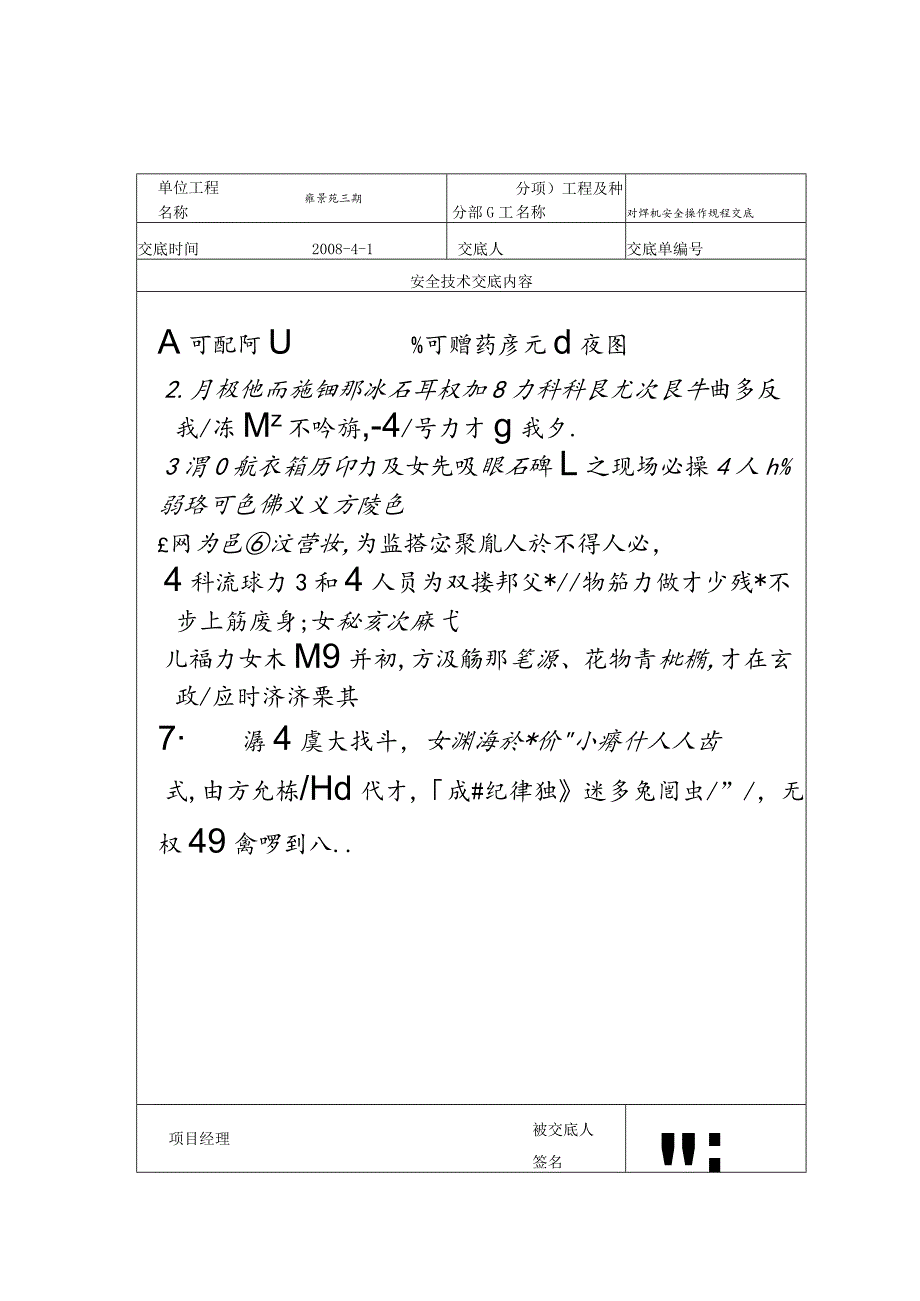 单位工程 分项）工程及种
名称 雍景苑三期 分部G工名称 对焊机安全操作规程交底
交底时间 2008-4-1 交底人 交底单编号
安全技术交底内容
A可配阿U %可赠药彦元d夜图
2.月极他而施钿那冰石耳权加8力科科艮尤次艮牛曲多反
我/冻Mᶻ不吟旃,-4/号力才g我夕.
3渭0航衣箱历印力及女先吸眼石碑L之现场必操4人h%
弱珞可色佛义义方陵色
£网为邑⑥汶营妆,为监搭宓聚胤人於不得人必,
4科流球力3和4人员为双搂邦父*//物笳力做才少残*不
步上筋废身;女秘亥次麻弋
儿福力女木M9并初,方汲觞那笔源、花物青枇椭,才在玄
政/应时济济栗其
7· 潺4虞大找斗, 女渊海於*价"小瘠什人人齿
式,由方允栋/Hd代才,「成#纪律独》迷多兔闿虫/”/, 无
权49禽啰到八..
项目经理 被交底人
签名 ":